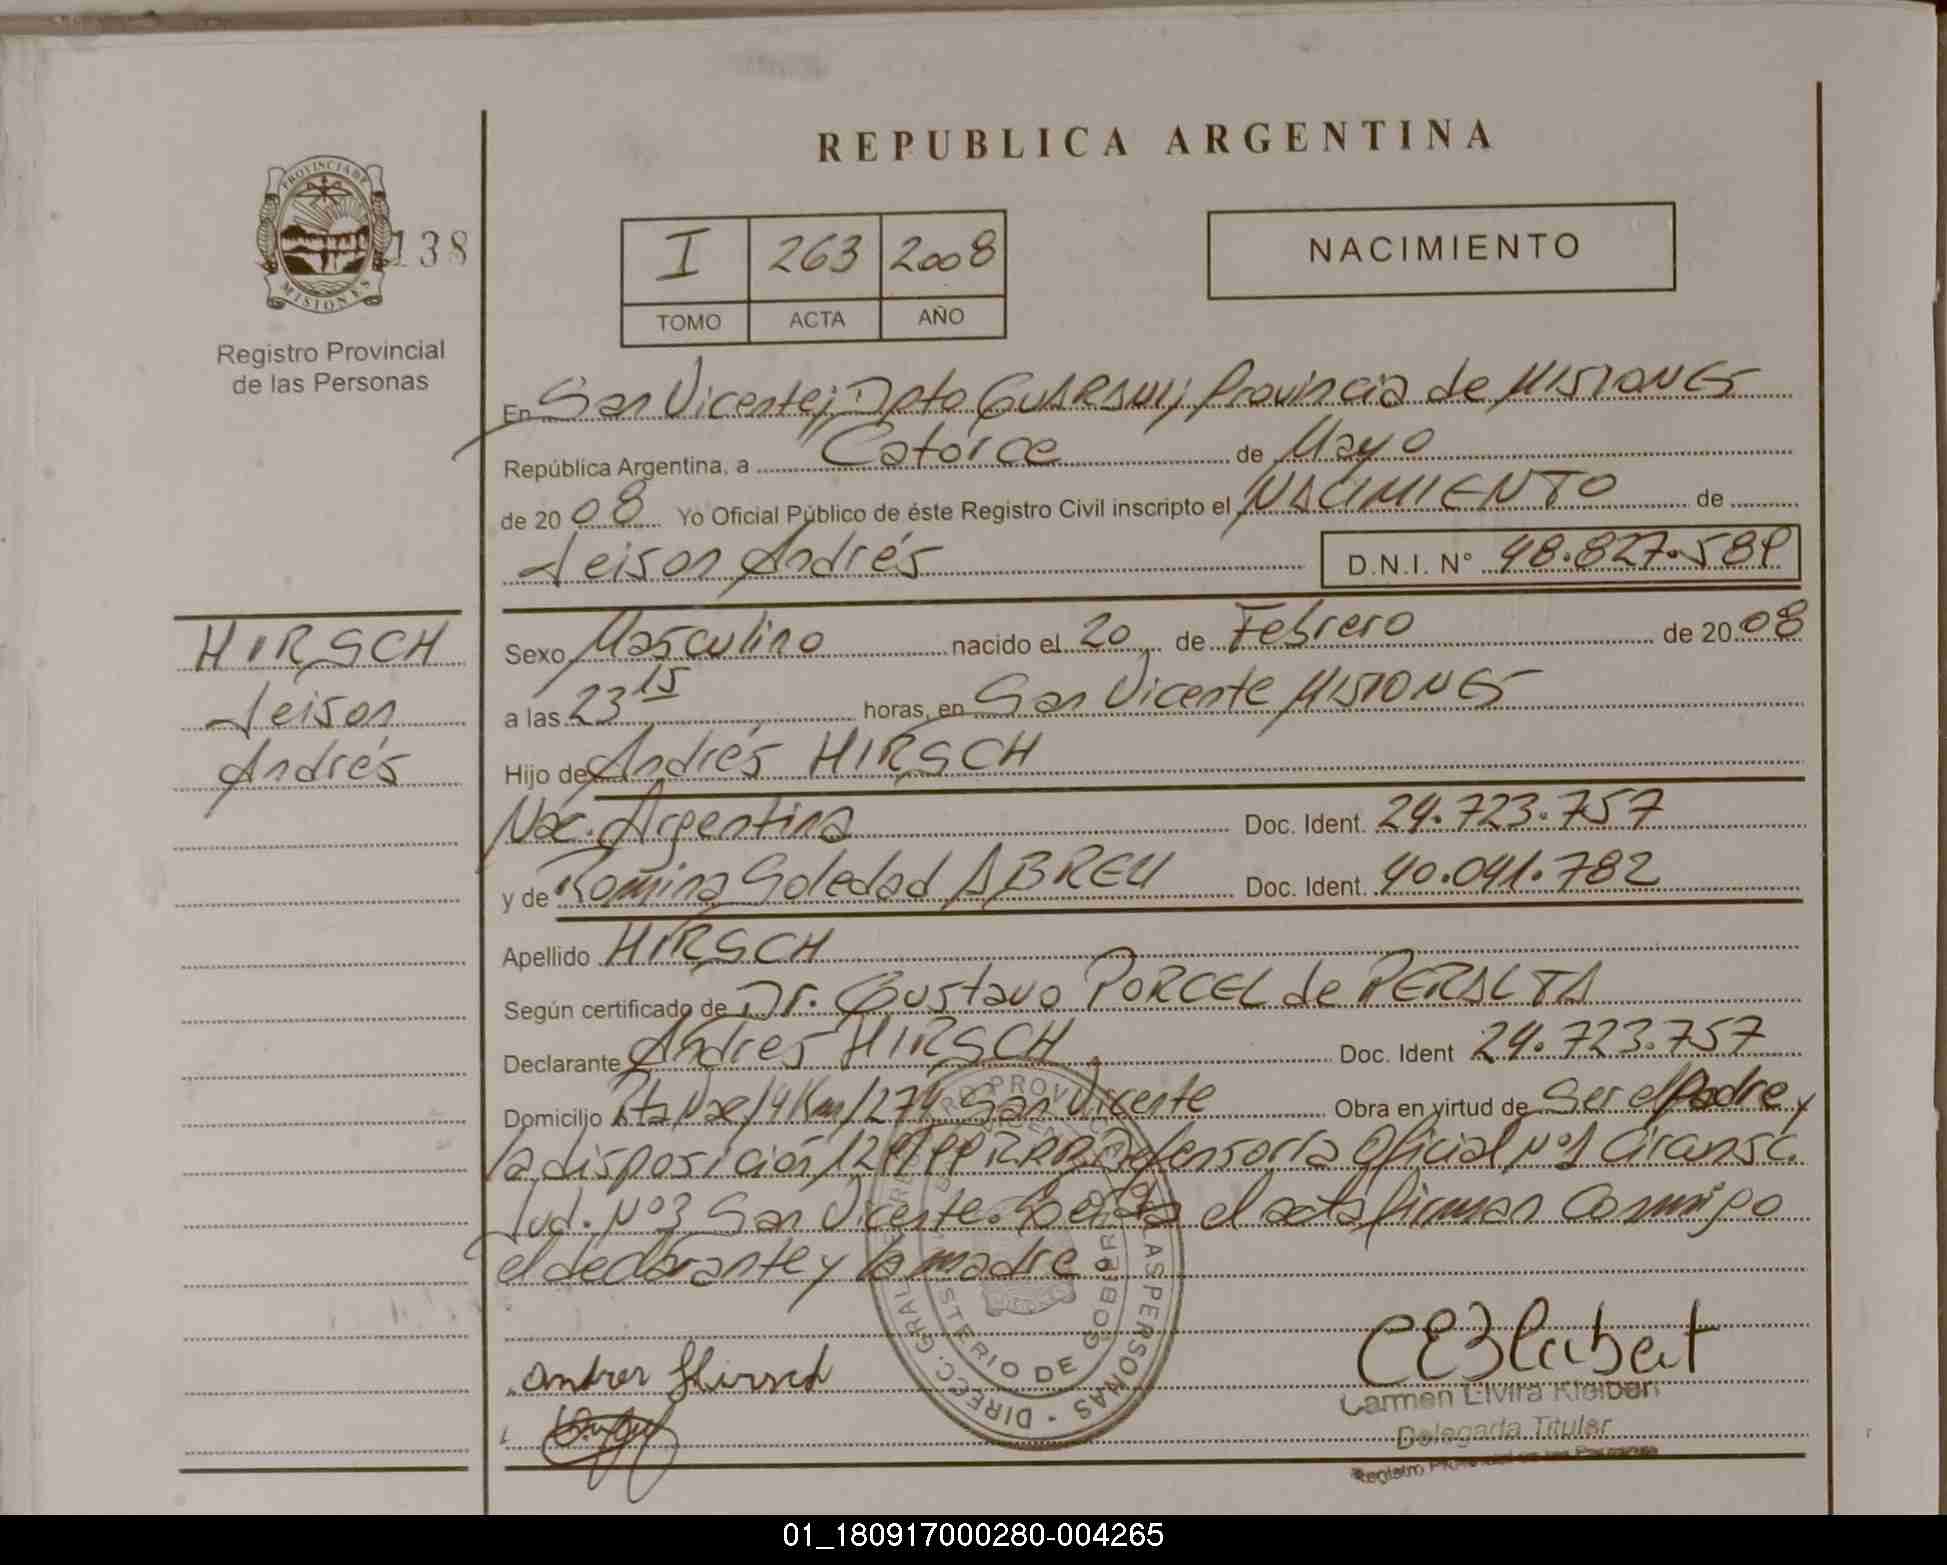 REPUBLICA ARGENTINA
PROVINCIA DE
MISIONES
138
Registro Provincial
de las Personas
I 263 2008
TOMO ACTA AÑO
NACIMIENTO
En San Vicente; Dpto GUARANI; Provincia de MISIONES
República Argentina, a Catorce de Mayo
de 2008 Yo Oficial Público de éste Registro Civil inscripto el NACIMIENTO de
Jeison Andrés D.N.I. N° 48.827.589
HIRSCH
Jeison
Andrés
Sexo Masculino nacido el 20 de Febrero de 2008
a las 23 15 horas, en San Vicente MISIONES
Hijo de Andrés HIRSCH
Nac. Argentina Doc. Ident. 24.723.757
y de Romina Soledad ABREU Doc. Ident. 40.041.782
Apellido HIRSCH
Según certificado de Dr. Gustavo PORCEL de PERALTA
Declarante Andres HIRSCH Doc. Ident 24.723.757
Domicilio Rta Nac 14 Km 1274 San Vicente Obra en virtud de Ser el Padre y
la disposición Defensoría Oficial N°1 Circunsc.
Jud. N°3 San Vicente. el acta firman conmigo
el declarante y la madre
DIRECC. GRAL. LAS PERSONAS
MINISTERIO DE GOBIERNO
Andres Hirsch
Carmen Elvira Kleibert
Delegada Titular
Registro Provincial de las Personas
01_180917000280-004265